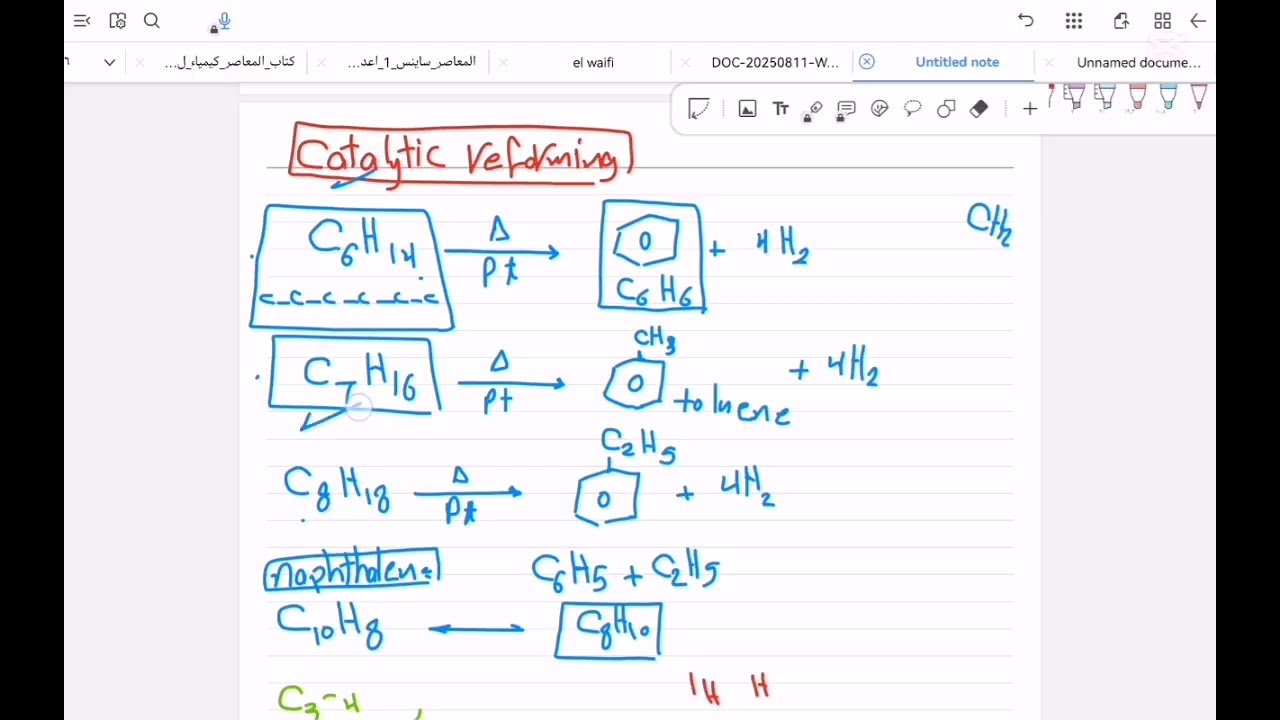 كتاب_المعاصر_كيمياء_ل...
المعاصر_ساينس_1_اعد...
el waifi
DOC-20250811-W...
Untitled note
Unnamed docume...
Tт
Catalytic reforming
C6H14 Δ Pt C6H6 + 4H2
CH2
C_C_C_C_C_C
C7H16 Δ Pt CH3 toluene + 4H2
C8H18 Δ Pt C2H5 + 4H2
naphthalene C6H5 + C2H5
C10H8 C8H10
C3-4
H H